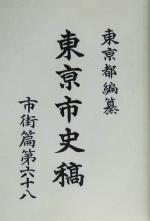 東京都編纂
東京市史稿
市街篇第六十八